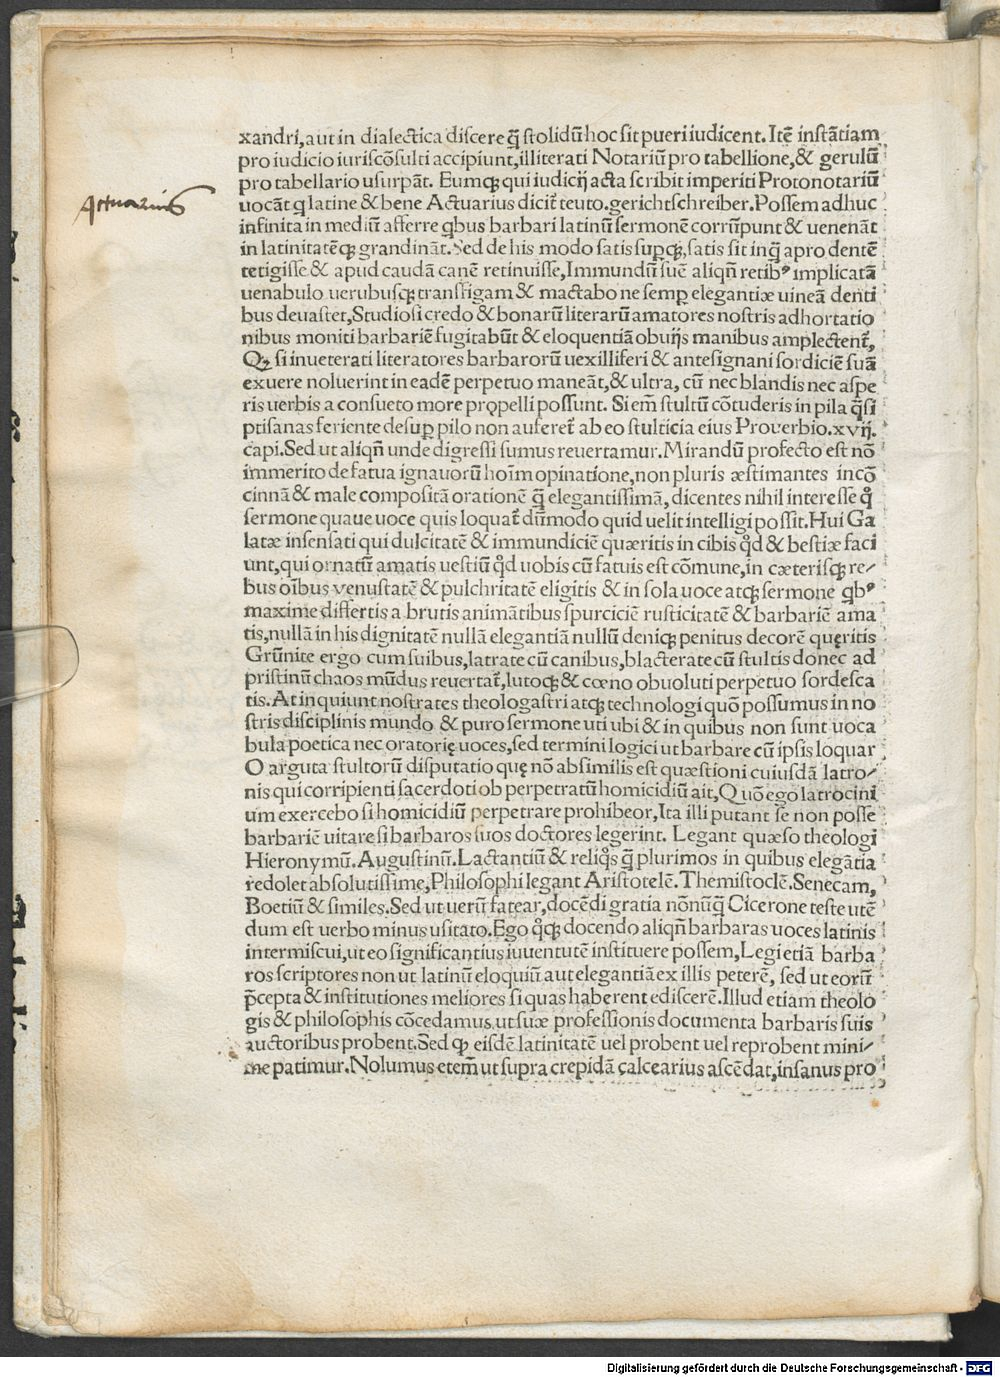 xandri,aut in dialectica discere q̄ stolidū hoc sit pueri iudicent. Itē instātiam
pro iudicio iuriscōsulti accipiunt,illiterati Notariū pro tabellione,& gerulū
pro tabellario usurpāt. Eumqꝫ qui iudicij acta scribit imperiti Protonotariū
Actuarius
uocāt q latine & bene Actuarius dicit᷑ teuto.gerichtschreiber.Possem adhuc
infinita in mediū afferre qbus barbari latinū sermonē corrūpunt & uenenāt
in latinitatēqꝫ grandināt.Sed de his modo satis supqꝫ,satis sit inq̄ apro dentē
tetigisse & apud caudā canē retinuisse,Immundū suē aliqn̄ retibꝰ implicatā
uenabulo uerubusqꝫ transfigam & mactabo ne semp elegantiæ uineā denti
bus deuastet,Studiosi credo & bonarū literarū amatores nostris adhortatio
nibus moniti barbariē fugitabūt & eloquentiā obuijs manibus amplectent᷑,
Qꝫ si inueterati literatores barbarorū uexilliferi & antesignani sordiciē suā
exuere noluerint in eadē perpetuo maneāt,& ultra, cū nec blandis nec aspe
ris uerbis a consueto more ꝓpelli possunt. Si em̄ stultū cōtuderis in pila q̄si
ptisanas feriente desup pilo non auferet᷑ ab eo stulticia eius Prouerbio.xvij.
capi.Sed ut aliqn̄ unde digressi sumus reuertamur.Mirandū profecto est nō
immerito de fatua ignauorū hoīm opinatione,non pluris æstimantes incō
cinnā & male compositā orationē q̄ elegantissimā, dicentes nihil interesse qͦ
sermone quaue uoce quis loquat᷑ dūmodo quid uelit intelligi possit.Hui Ga
latæ insensati qui dulcitatē & immundiciē quæritis in cibis qͦd & bestiæ faci
unt,qui ornatū amatis uestiū qͦd uobis cū fatuis est cōmune,in cæterisqꝫ re⸗
bus oībus venustatē & pulchritatē eligitis & in sola uoce atqꝫ sermone qbꝰ
maxime differtis a brutis animātibus spurciciē rusticitatē & barbariē ama
tis,nullā in his dignitatē nullā elegantiā nullū deniqꝫ penitus decorē quęritis
Grūnite ergo cum suibus,latrate cū canibus,blacterate cū stultis donec ad
pristinū chaos mūdus reuertat᷑,lutoqꝫ & cœno obuoluti perpetuo sordesca
tis.At inquiunt nostrates theologastri atqꝫ technologi quō possumus in no
stris disciplinis mundo & puro sermone uti ubi & in quibus non sunt uoca
bula poetica nec oratorię uoces,sed termini logici ut barbare cū ipsis loquar
O arguta stultorū disputatio quę nō absimilis est quæstioni cuiusdā latro⸗
nis qui corripienti sacerdoti ob perpetratū homicidiū ait,Quō ego latrocini
um exercebo si homicidiū perpetrare prohibeor,Ita illi putant se non posse
barbariē uitare si barbaros suos doctores legerint. Legant quæso theologi
Hieronymū.Augustinū.Lactantiū & reliqͦs q̄ plurimos in quibus elegātia
redolet absolutissime,Philosophi legant Aristotelē.Themistoclē.Senecam,
Boetiū & similes.Sed ut uerū fatear,docēdi gratia nōnūq̄ Cicerone teste utē
dum est uerbo minus usitato.Ego qͦqꝫ docendo aliqn̄ barbaras uoces latinis
intermiscui,ut eo significantius iuuentutē instituere possem,Legi etiā barba
ros scriptores non ut latinū eloquiū aut elegantiā ex illis peterē, sed ut eorū
p̄cepta & institutiones meliores si quas haberent ediscerē.Illud etiam theolo
gis & philosophis cōcedamus,ut suæ professionis documenta barbaris suis
auctoribus probent.Sed ꝙ eisdē latinitatē uel probent uel reprobent mini⸗
me patimur.Nolumus etem̄ ut supra crepidā calcearius ascēdat,insanus pro
Digitalisierung gefördert durch die Deutsche Forschungsgemeinschaft - DFG